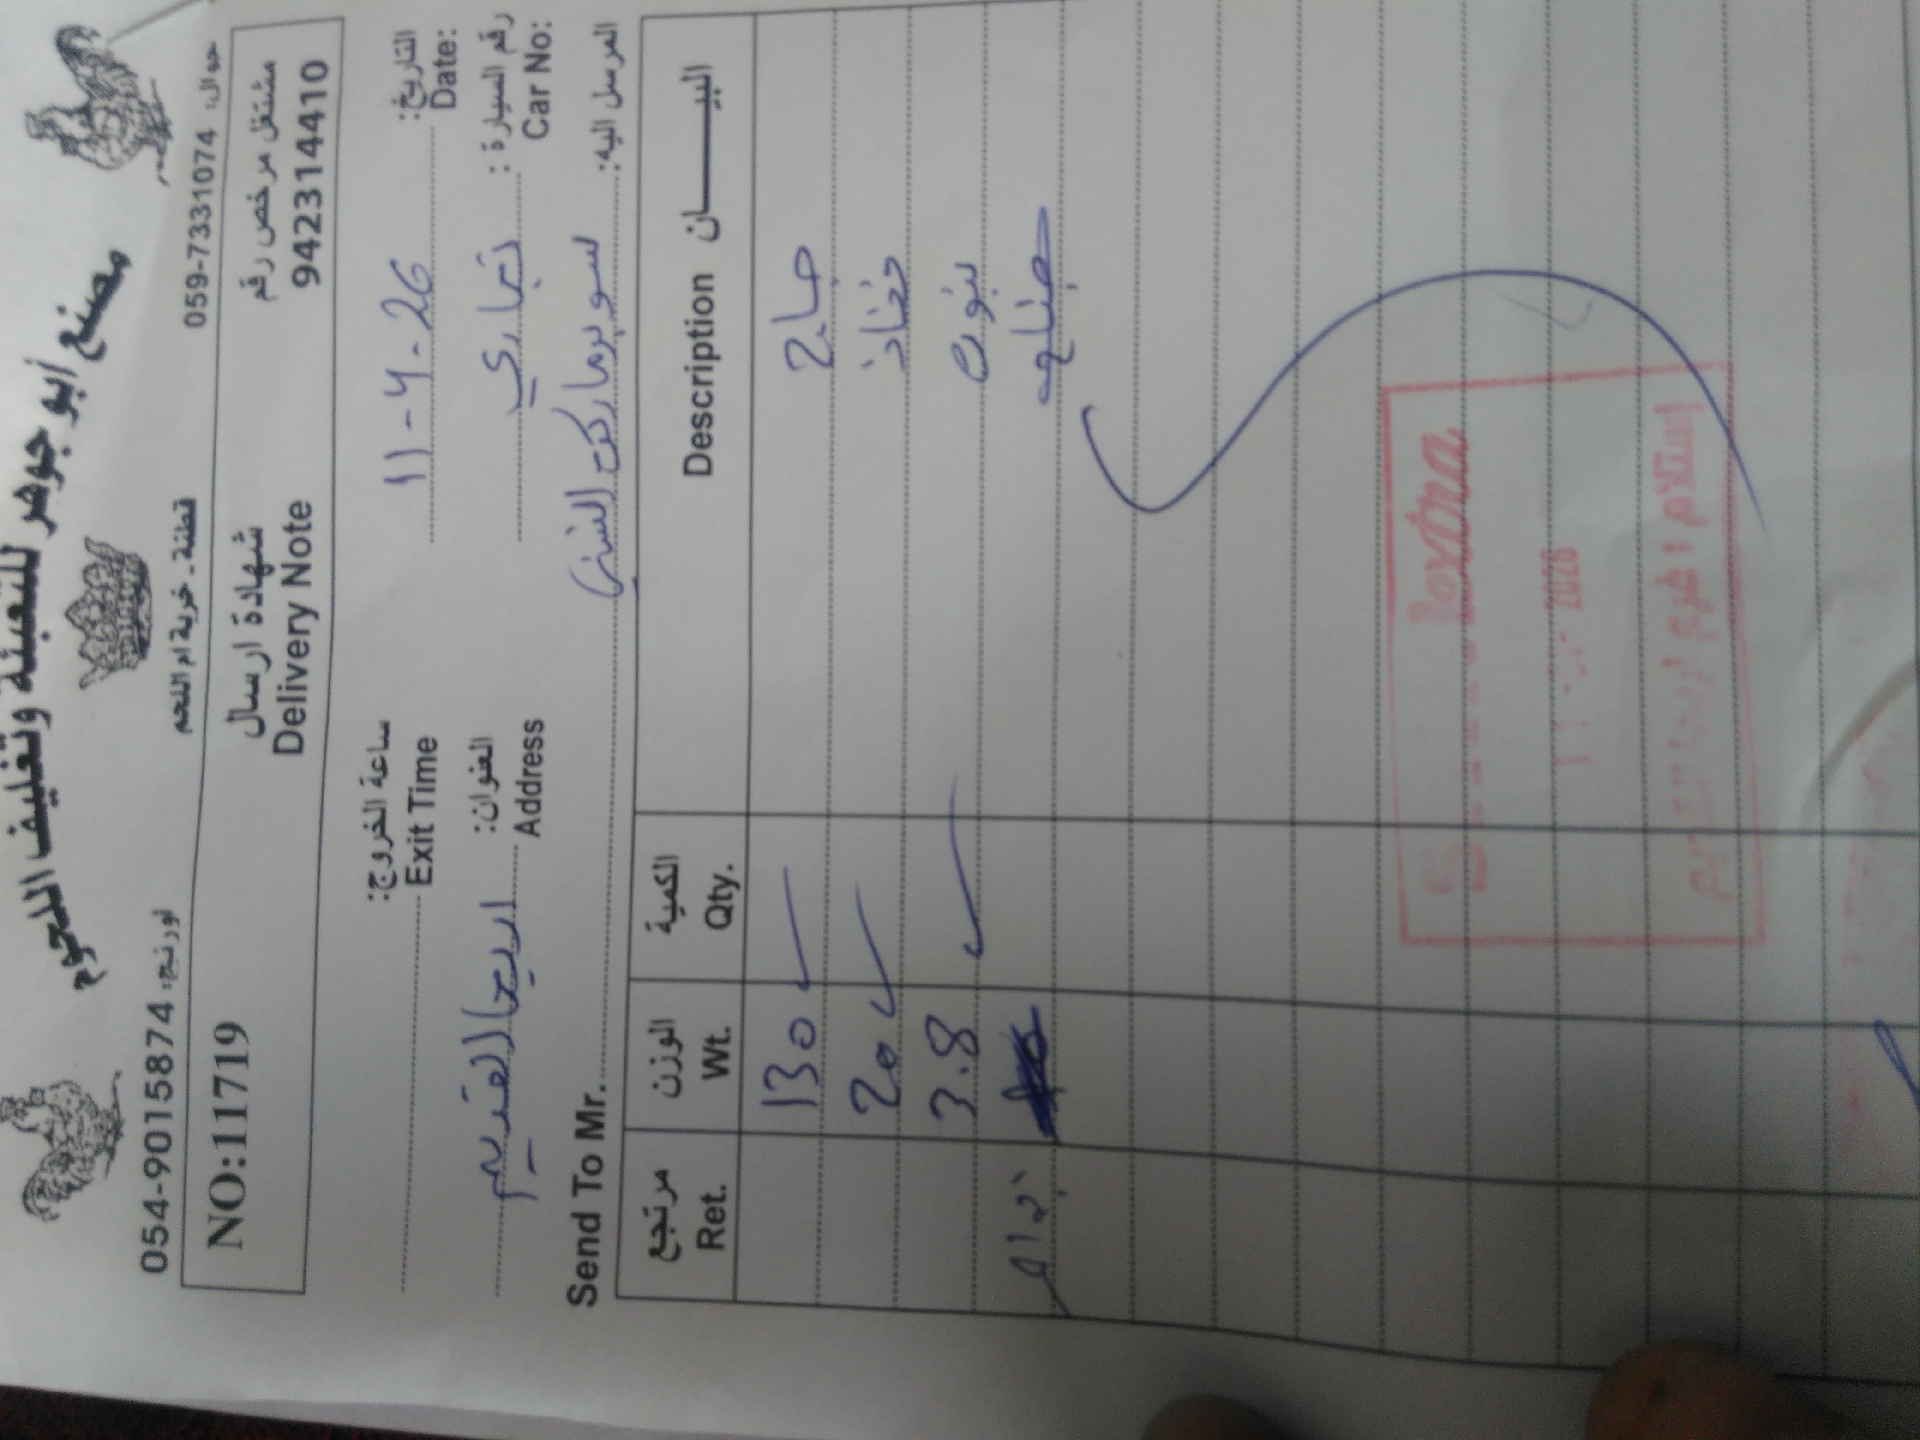 مصنع أبو جوهر للتعبئة وتغليف اللحوم
جوال: 059-7331074 قطنة - خربة ام اللحم اورنج: 054-9015874
مشتغل مرخص رقم
942314410
شهادة ارسال
Delivery Note
NO:11719
التاريخ: 11-4-26 ساعة الخروج:
Date: Exit Time
رقم السيارة: تجاري العنوان: اريحا القديم
Car No: Address
المرسل اليه: سوبرماركت السني Send To Mr.
البيان Description الكمية Qty. الوزن Wt. مرتجع Ret.
130
فخاذ 20
3.8
extra
2026
استلام فرع اريحا القديم